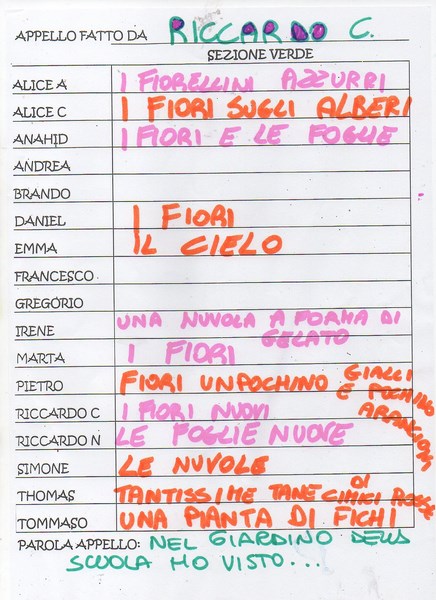 APPELLO FATTO DA RICCARDO C.
SEZIONE VERDE
ALICE A I FIORELLINI AZZURRI
ALICE C I FIORI SUGLI ALBERI
ANAHID I FIORI E LE FOGLIE
ANDREA
BRANDO
DANIEL I FIORI
EMMA IL CIELO
FRANCESCO
GREGÓRIO
IRENE UNA NUVOLA A FORMA DI
GELATO
MARTA I FIORI
PIETRO FIORI UN POCHINO GIALLI
E POCHINO
ARANCIONI
RICCARDO C I FIORI NUOVI
RICCARDO N LE FOGLIE NUOVE
SIMONE LE NUVOLE
THOMAS TANTISSIME TANE DI CIMICI ROSSE
TOMMASO UNA PIANTA DI FICHI
PAROLA APPELLO: NEL GIARDINO DELLA
SCUOLA HO VISTO...